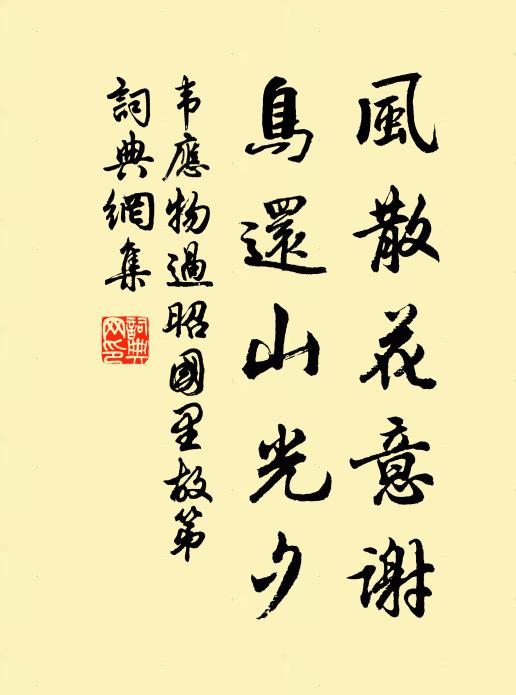 風散花意謝
鳥還山光夕
韦應物過昭國里故第
詞典網集
詞典网印